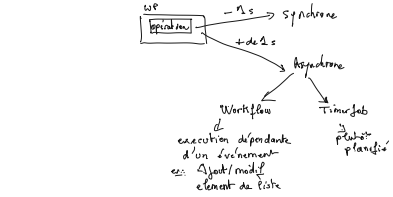 WP
opération
- 1s
Synchrone
+ de 1s
Asynchrone
Workflow
TimerJob
execution dépendante
d'un événement
ex: Ajout/modif
element de liste
plutôt
planifié